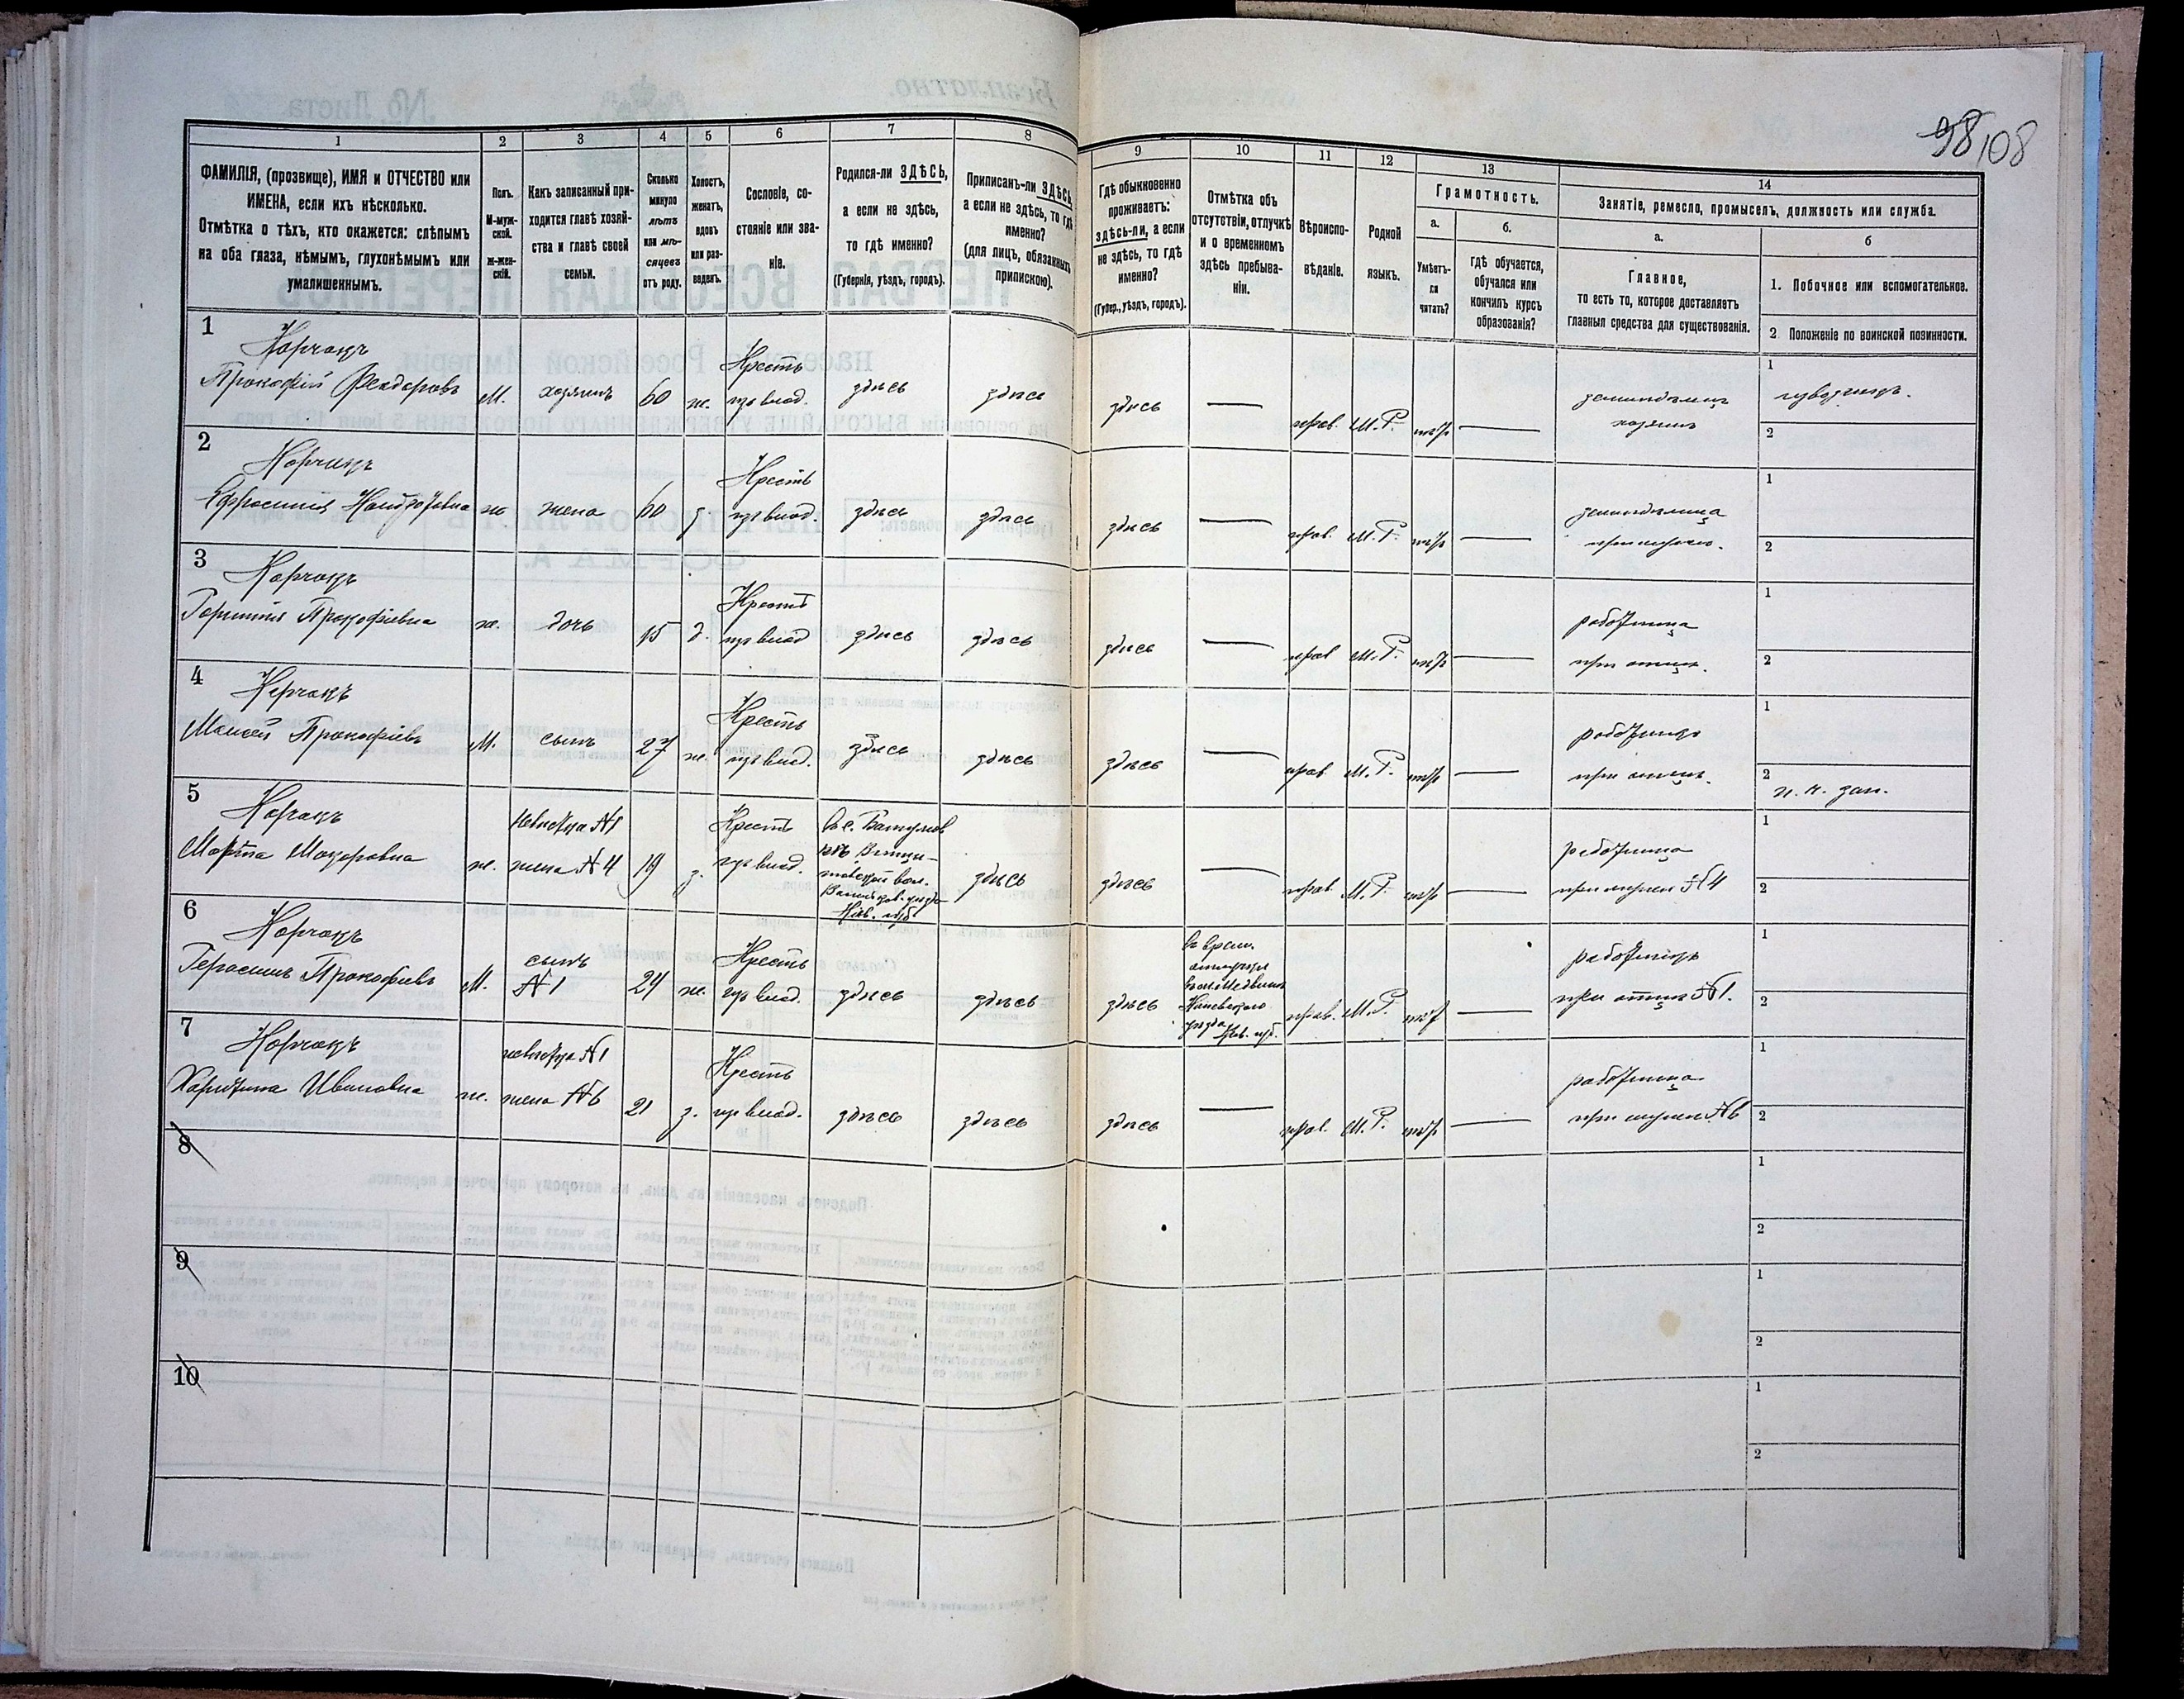 98/108
1
2
3
4
5
6
7
8
9
10
11
12
13
14
ФАМИЛІЯ, (прозвище), ИМЯ и ОТЧЕСТВО или
ИМЕНА, если ихъ нѣсколько.
Отмѣтка о тѣхъ, кто окажется: слѣпымъ
на оба глаза, нѣмымъ, глухонѣмымъ или
умалишеннымъ.
Полъ.
М-муж-
ской.
ж-жен-
скій.
Какъ записанный при-
ходится главѣ хозяй-
ства и главѣ своей
семьи.
Сколько
минуло
лѣтъ
или мѣ-
сяцевъ
отъ роду.
Холостъ,
женатъ,
вдовъ
или раз-
веденъ.
Сословіе, со-
стояніе или зва-
ніе.
Родился-ли ЗДѢСЬ,
а если не здѣсь,
то гдѣ именно?
(Губернія, уѣздъ, городъ).
Приписанъ-ли ЗДѢСЬ,
а если не здѣсь, то гдѣ
именно?
(для лицъ, обязанныхъ
припискою).
Гдѣ обыкновенно
проживаетъ:
здѣсь-ли, а если
не здѣсь, то гдѣ
именно?
(Губер., уѣздъ, городъ).
Отмѣтка объ
отсутствіи, отлучкѣ
и о временномъ
здѣсь пребыва-
ніи.
Вѣроиспо-
вѣданіе.
Родной
языкъ.
Грамотность.
а.
Умѣетъ-
ли
читать?
б.
гдѣ обучается,
обучался или
кончилъ курсъ
образованія?
Занятіе, ремесло, промыселъ, должность или служба.
а.
Главное,
то есть то, которое доставляетъ
главныя средства для существованія.
б
1. Побочное или вспомогательное.
2. Положеніе по воинской повинности.
1
Корчакъ
Прокофій Феодоровъ
М.
хозяинъ
60
ж.
Крестъ
изъ влад.
здѣсь
здѣсь
здѣсь
—
прав.
М.Р.
нѣтъ
—
земледѣлецъ
хозяинъ
1
извозчикъ.
2
2
Корчакъ
Ефросинія
ж
жена
60
з.
Крестъ
изъ влад.
здѣсь
здѣсь
здѣсь
—
прав.
М.Р.
нѣтъ
—
земледѣлица
при мужѣ.
1
2
3
Корчакъ
Прокофіевна
ж.
дочь
15
д.
Крестъ
изъ влад
здѣсь
здѣсь
здѣсь
—
прав
М.Р.
нѣтъ
—
работница
при отцѣ.
1
2
4
Корчакъ
Моисей Прокофіевъ
М.
сынъ
27
ж.
Крестъ
изъ влад.
здѣсь
здѣсь
здѣсь
—
прав
М.Р.
нѣтъ
—
работникъ
при отцѣ.
1
2
н. к. зап.
5
Корчакъ
Марта Макаровна
ж.
невѣстка №1
жена №4
19
з.
Крестъ
изъ влад.
Кіев. губ
здѣсь
здѣсь
—
прав.
М.Р.
нѣтъ
—
работница
при мужѣ №4
1
2
6
Корчакъ
Герасимъ Прокофіевъ
М.
сынъ
№1
24
ж.
Крестъ
изъ влад.
здѣсь
здѣсь
здѣсь
въ врем.
отлучкѣ
Каневскаго
уѣзда Кіев. губ.
прав.
М.Р.
нѣтъ
—
работникъ
при отцѣ №1.
1
2
7
Корчакъ
Харитина Ивановна
ж.
невѣстка №1
жена №6
21
з.
Крестъ
изъ влад.
здѣсь
здѣсь
здѣсь
—
прав.
М.Р.
нѣтъ
—
работница
при мужѣ №6
1
2
8
1
2
9
1
2
10
1
2